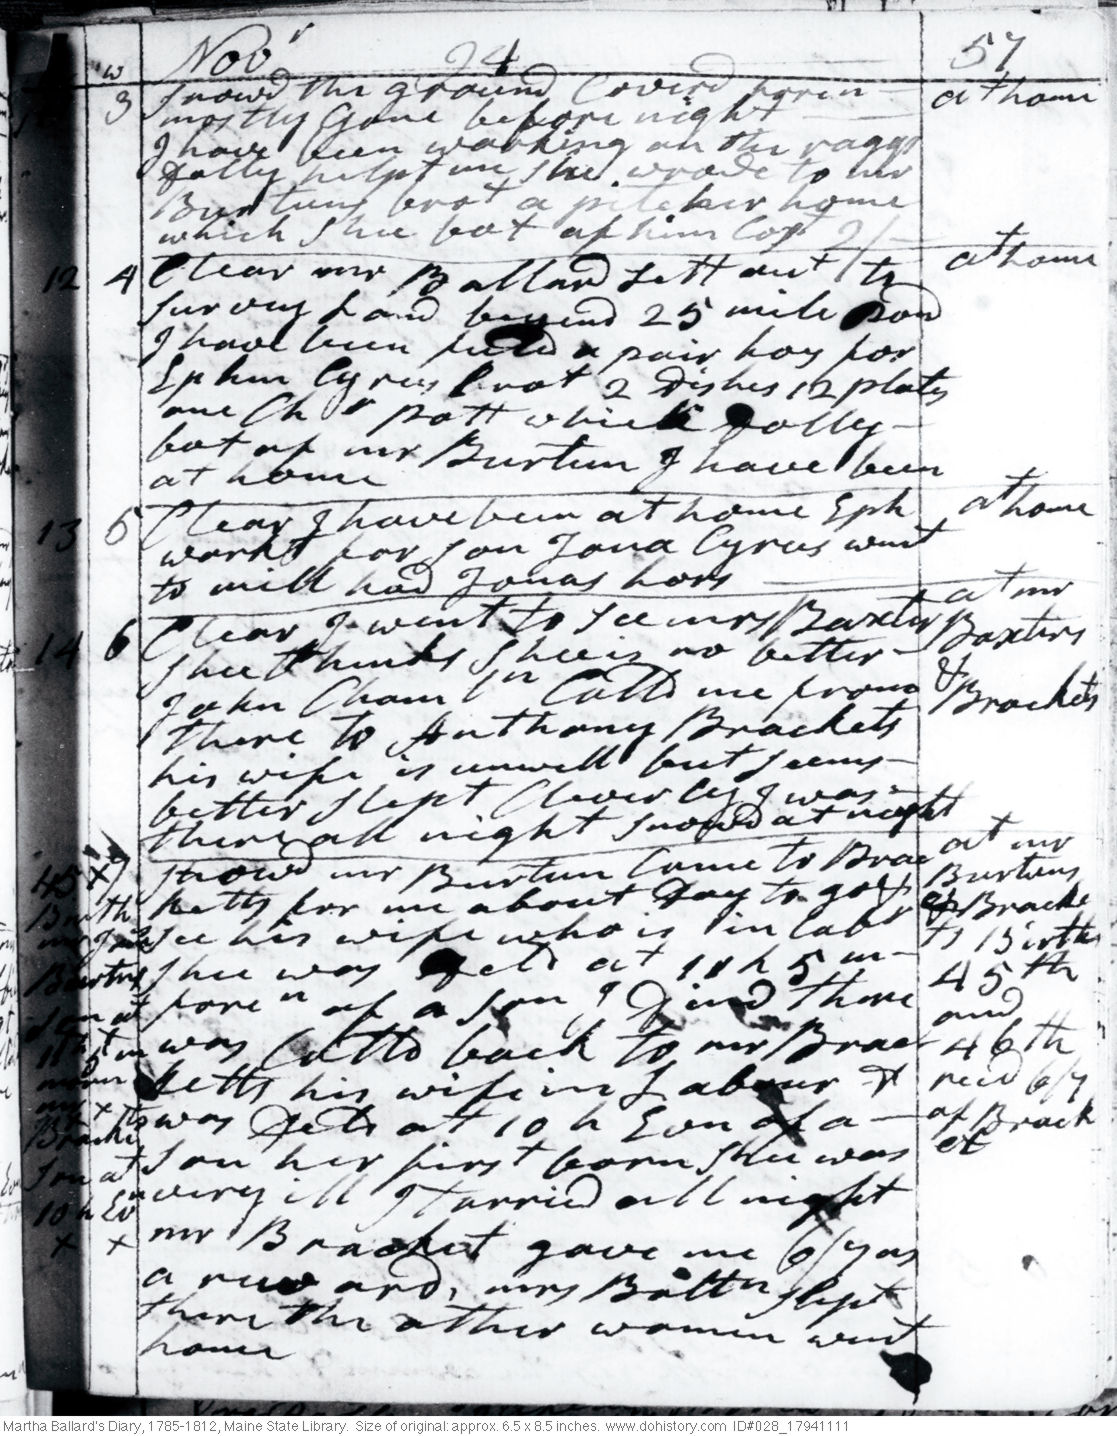 Novr 94 57
w
3 Snowd the ground Coverd foren at home
mostly Gone before night
I have been working on the raggs
Dolly helpt me Shee wrode to mr
Burtuns brot a pitcher home
which Shee bot of him Cost 2/
12 4 Clear mr Ballard sett out to at home
survey Land beyond 25 mile Pond
I have been a pair hoy for
Ephm Cyrus brot 2 Dishes 12 plates
one Chr pott which Dolly
bot of mr Burtun I have been
at home
13 5 Clear I have been at home Eph at home
workt for son Jona Cyrus went
to mill had Jonas hors
14 6 Clear I went to see mrs Baxter at mr Baxters
Shee thinks Shee is no better &
John Chamln Calld me from Brackets
there to Anthony Brackets
his wife is unwell but seems
better slept Cleverly I was
there all night Snowd at night
15 7 Snowd mr Burtun Come to Brac at mr
ketts for me about Day to go & Burtuns
see his wife who is in labr & Bracke
Shee was Deld at 11 h 5 m ts Births
foren of a son I Dined there 45th
was Calld back to mr Brac and
ketts his wife in Labour & 46th
was Deld at 10 h Evn of a recd 6/7
son her first born Shee was of Brack
very ill I tarried all night et
mr Bracket gave me 6/7 as
a reward, mrs Boltn slept
there the other women went
home
45 x
Birth
mr
Burtns
Son at
11 h 5 m
morn
x
Bracke
Son at
10 h Ev
x x
Martha Ballard's Diary, 1785-1812, Maine State Library. Size of original: approx. 6.5 x 8.5 inches. www.dohistory.com ID#028_17941111